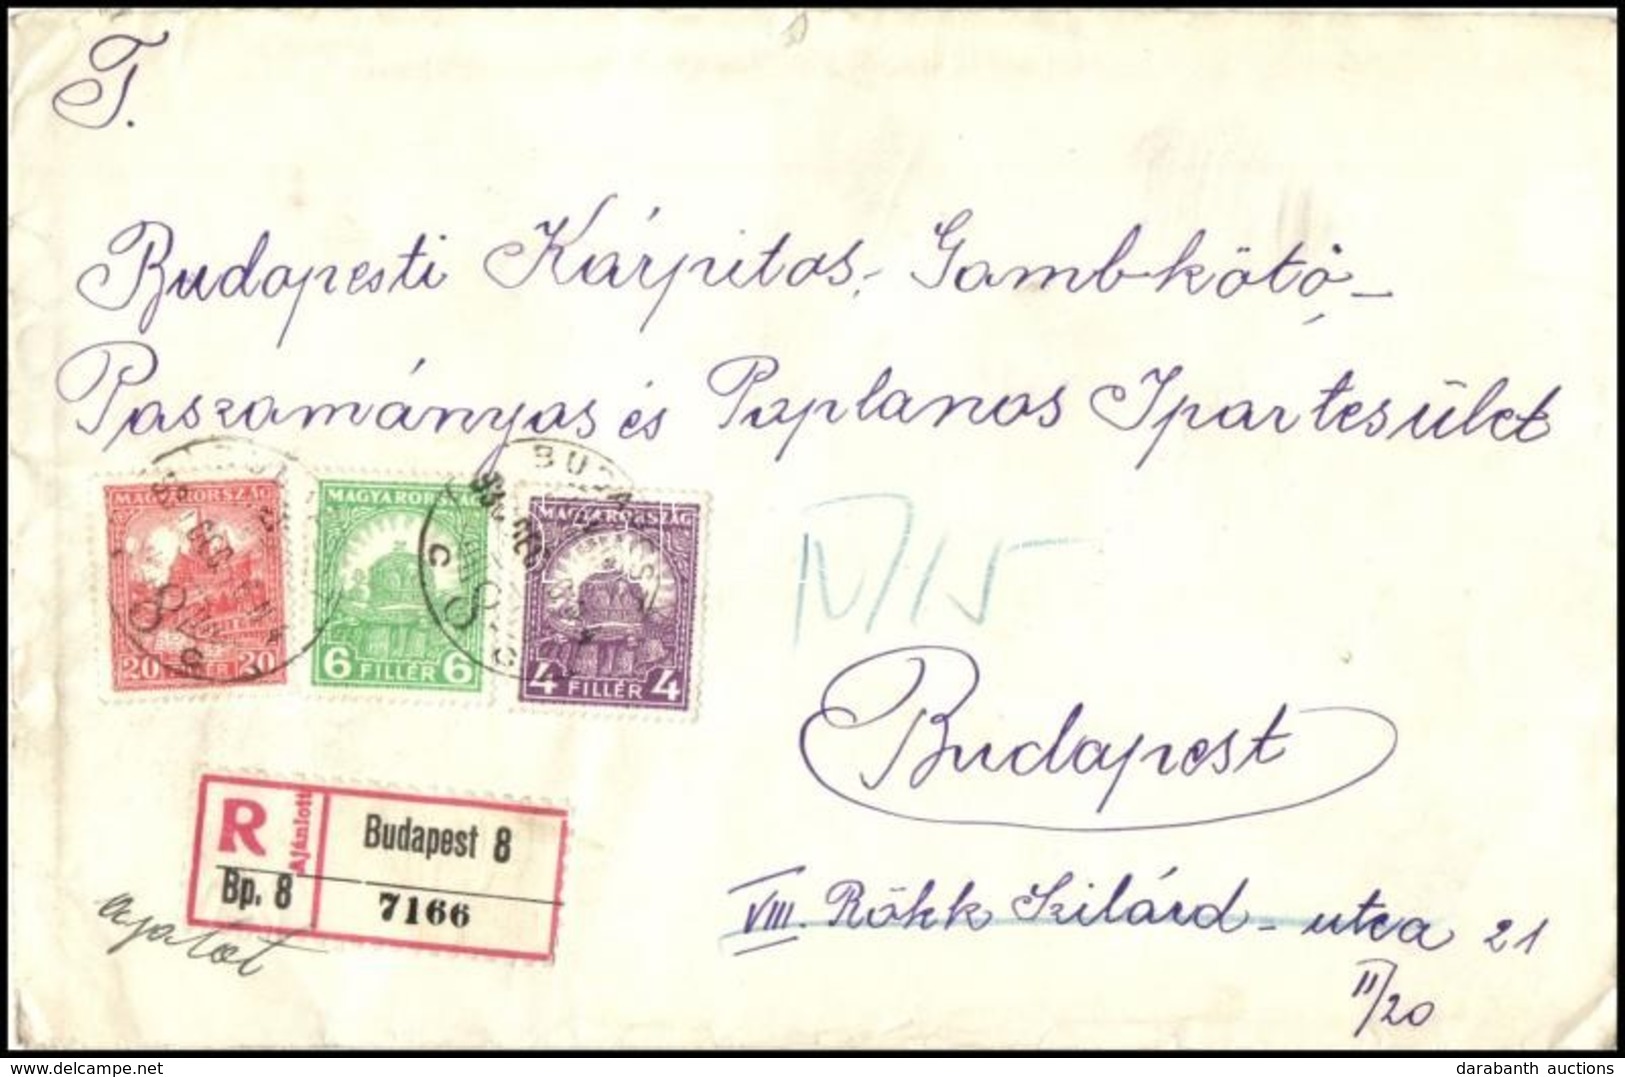 T.
Budapesti Kárpitos, Gombkötő-
Paszományos és Paplanos Ipartesület
MAGYARORSZÁG
20 FILLÉR 20
MAGYARORSZÁG
6 FILLÉR 6
MAGYARORSZÁG
4 FILLÉR 4
IV/15
Budapest
R Ajánlott Budapest 8
Bp. 8 7166
VIII. Rökk Szilárd-utca 21
II/20
delcampe.net
darabanth auctions